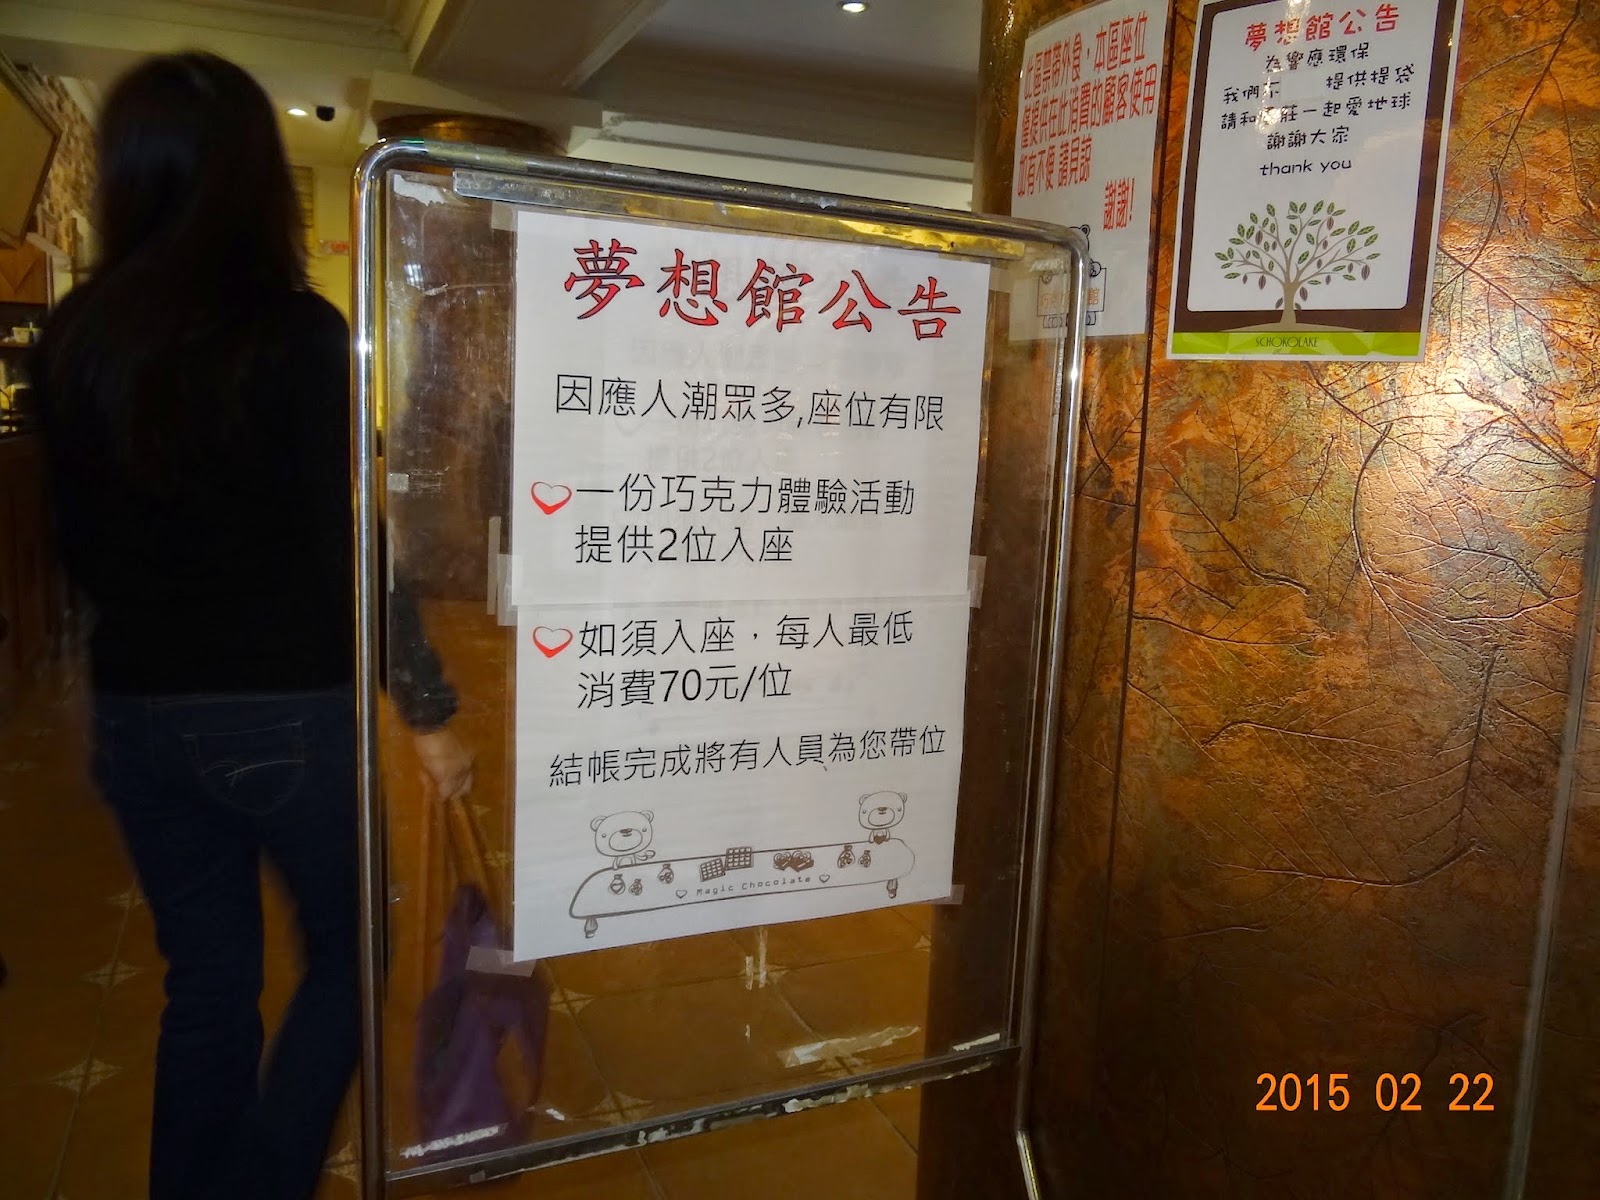 夢想館公告
因應人潮眾多,座位有限
一份巧克力體驗活動
提供2位入座
如須入座，每人最低
消費70元/位
結帳完成將有人員為您帶位
Magic Chocolate
此區禁帶外食，本區座位
僅提供在此消費的顧客使用
如有不便 請見諒
謝謝!
夢想館公告
為響應環保
我們不 提供提袋
請和 莊一起愛地球
謝謝大家
thank you
SCHOKOLAKE
2015 02 22